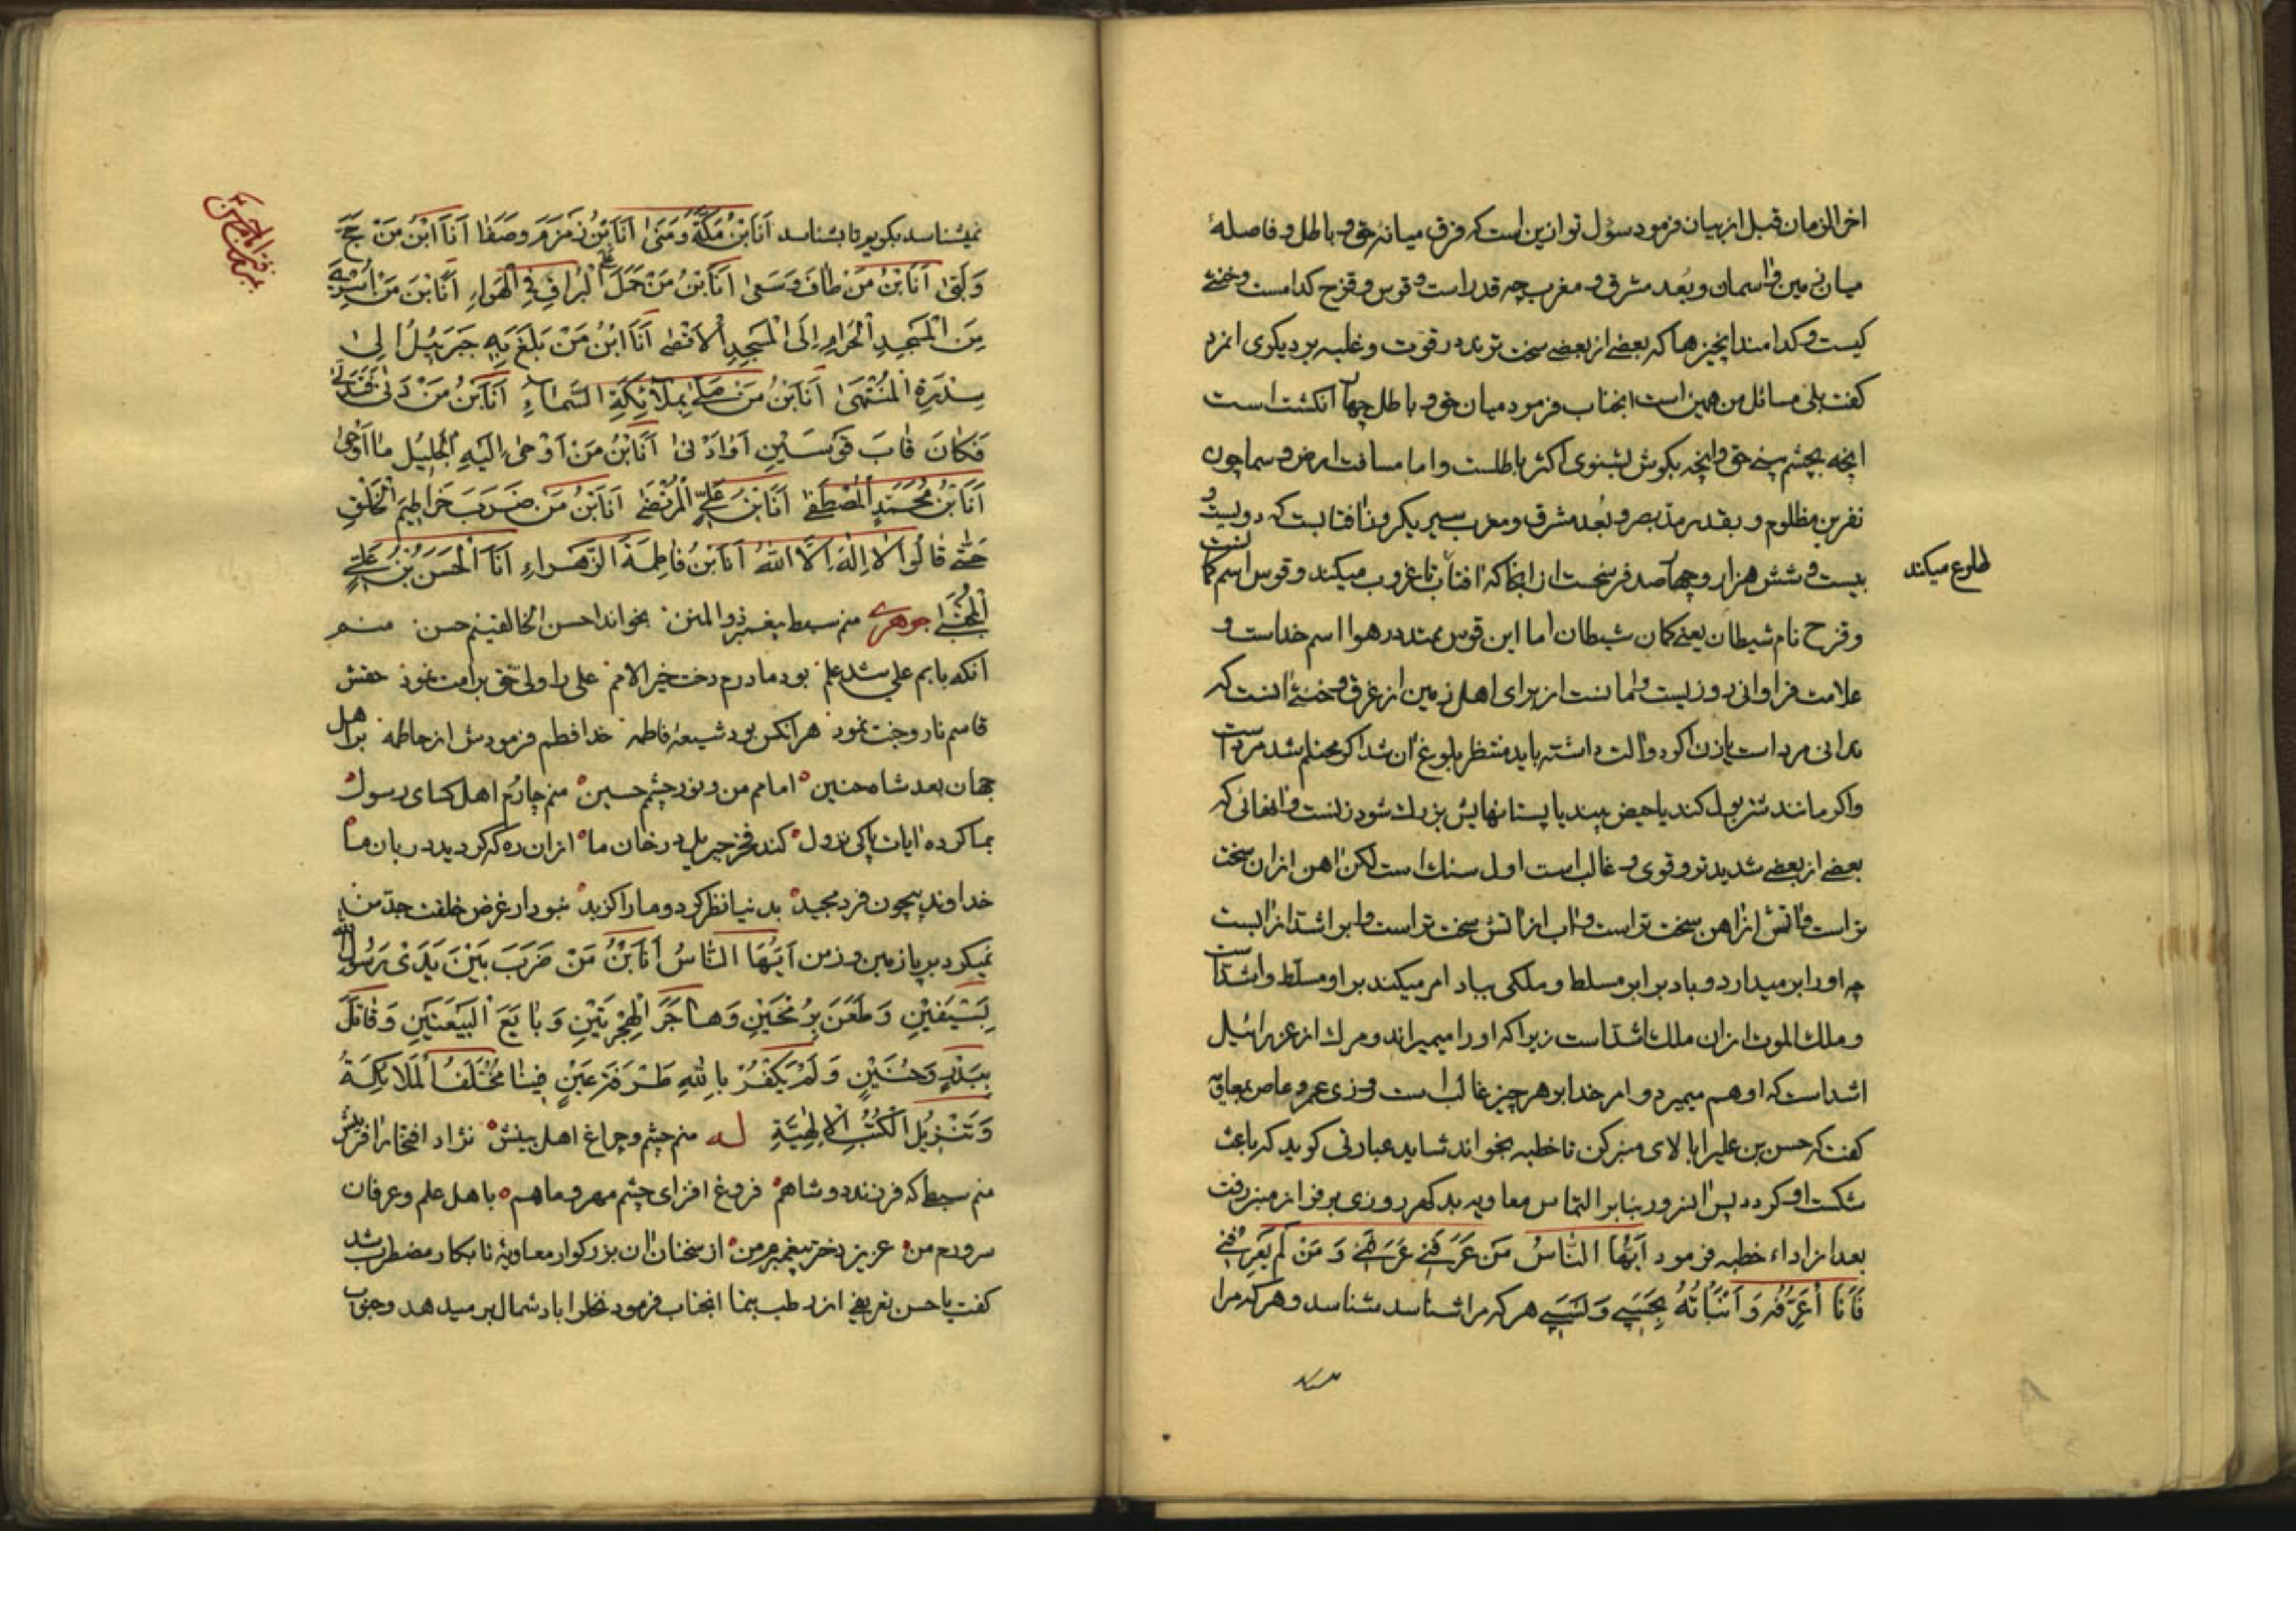 اخر الزمان قبل از بیان فرمود سؤل تو از این است که فرق میانه حق و باطل و فاصلهٔ
میان زمین و اسمان و بعد مشرق و مغرب چه قدر است و قوس و قزح کدامست و خنثی
کیست و کدامند انچیزها که بعضی از بعضی سخت ترند در قوت و غلبه بر دیکری انمرد
کفت بلی مسائل من همین است انجناب فرمود میان حق و باطل چهار انکشت است
انچه بچشم بینی حق و انچه بکوش بشنوی اکثر باطلست و اما مسافت ارض و سما چون
نفرین مظلوم و بقدر مد بصر و بعد مشرق و مغرب سیر یکروز افتابست که دویست و
بیست و شش هزار و چهار صد فرسخست از انجا که افتاب تا غروب میکند و قوس اسم کمانست
طلوع میکند
و قزح نام شیطان یعنی کمان شیطان اما این قوس ممتد در هوا اسم خداست و
علامت فراوانی روزیست و امانست از برای اهل زمین از غرق و خنثی انست که
ندانی مرد است یا زن اکر دو الت داشته باید منتظر بلوغ ان شد اکر محتلم شد مرد است
و اکر مانند شتر بول کند یا حیض بیند یا پستانهایش بزرک شود زنست و انهائی که
بعضی از بعضی شدیدتر و قوی و غالب است اول سنک است لکن اهن از ان سخت
تر است و اتش از اهن سخت تر است و اب از اتش سخت تر است و ابر اشد از ابست
چه او را بر میدارد و باد بر ابر مسلط و ملکی بباد امر میکند بر او مسلط و اشد است
و ملک الموت از ان ملک اشد است زیرا که او را میمیراند و مرک از عزرائیل
اشد است که او هم میمیرد و امر خدا بر هر چیز غالب است روزی عمرو عاص بمعاویه
کفت که حسن بن علی را بالای منبر کن تا خطبه بخواند شاید عبارتی کوید که باعث
شکست او کردد پس انسرور بنابر التماس معاویه بد کهر روزی بر فراز منبر رفت
بعد از اداء خطبه فرمود اَیُّهَا النَّاسُ مَنْ عَرَفَنی عَرَفَنی وَ مَنْ لَمْ یَعْرِفْنی
فَاَنَا اُعَرِّفُهُ وَ اَنْبَاْتُهُ بِحَسَبی وَ نَسَبی هر که مرا شناسد شناسد و هر که مرا
نمیشناسد بکویم تا بشناسد اَنَا بْنُ مَکَّةَ وَ مَنٰی اَنَا بْنُ زَمْزَمَ وَ صَفَا اَنَا ابْنُ مَنْ حَجَّ
وَ لَبّٰی اَنَا بْنُ مَنْ طَافَ وَ سَعٰی اَنَا بْنُ مَنْ حَمَلَ عَلَی الْبُرَاقِ فِی الْهَوَاءِ اَنَا بْنُ مَنْ اُسْرِیَ بِهِ
مِنَ الْمَسْجِدِ الْحَرَامِ اِلَی الْمَسْجِدِ الْاَقْصٰی اَنَا ابْنُ مَنْ بَلَغَ بِهِ جَبْرَئِیلُ اِلٰی
سِدْرَةِ الْمُنْتَهٰی اَنَا بْنُ مَنْ صَلّٰی بِمَلَائِکَةِ السَّمَاءِ اَنَا بْنُ مَنْ دَنٰی فَتَدَلّٰی
فَکَانَ قَابَ قَوْسَیْنِ اَوْ اَدْنٰی اَنَا بْنُ مَنْ اَوْحٰی اِلَیْهِ الْجَلِیلُ مَا اَوْحٰی
اَنَا بْنُ مُحَمَّدٍ الْمُصْطَفٰی اَنَا بْنُ عَلِیٍّ الْمُرْتَضٰی اَنَا بْنُ مَنْ ضَرَبَ خَرَاطِیمَ الْخَلْقِ
حَتّٰی قَالُوا لَا اِلٰهَ اِلَّا اللهُ اَنَا بْنُ فَاطِمَةَ الزَّهْرَاءِ اَنَا الْحَسَنُ بْنُ عَلِیٍّ
الْمُجْتَبٰی جوهری منم سبط پیغمبر ذو المنن بخواند احسن الخالقینم حسن منم
انکه بابم علی شد علم بود مادرم دخت خیر الامم علی را ولی حق برامت نمود حقش
قاسم نار و جنت نمود هر انکس بود شیعهٔ فاطمه خدا فطم فرمودش از حاطمه بر اهل
جهان بعد شاه حنین امامم من و نور چشمم حسین منم چارم اهل کسای رسول
بما کرده ایات پاکی نزول کند فخر جبریل در خان ما از ان ره که کردید دربان ما
خداوند بیچون فرد مجید بدنیا نظر کرد و ما را کزید نبود ار غرض خلقت جد من
نمیکرد بر پا زمین و زمن اَیُّهَا النَّاسُ اَنَا بْنُ مَنْ ضَرَبَ بَیْنَ یَدَیْ رَسُولِ اللهِ
بِسَیْفَیْنِ وَ طَعَنَ بِرُمْحَیْنِ وَ هَاجَرَ الْهِجْرَتَیْنِ وَ بَایَعَ الْبَیْعَتَیْنِ وَ قَاتَلَ
بِبَدْرٍ وَ حُنَیْنٍ وَ لَمْ یَکْفُرْ بِاللهِ طَرْفَةَ عَیْنٍ فِینَا مُخْتَلَفُ الْمَلَائِکَةُ
وَ تَنْزِیلُ الْکُتُبِ الْاِلٰهِیَّةِ له منم چشم و چراغ اهل بینش نژاد افتخار افرینش
منم سبط که فرزند دو شاهم فروغ افزای چشم مهر و ماهم با اهل علم و عرفان
سرورم من عزیز دختر پیغمبرم من از سخنان ان بزرکوار معاویهٔ نابکار مضطرب شد
کفت یا حسن تعریفی از رطب بنما انجناب فرمود نخل را باد شمال بر میدهد و جنوب